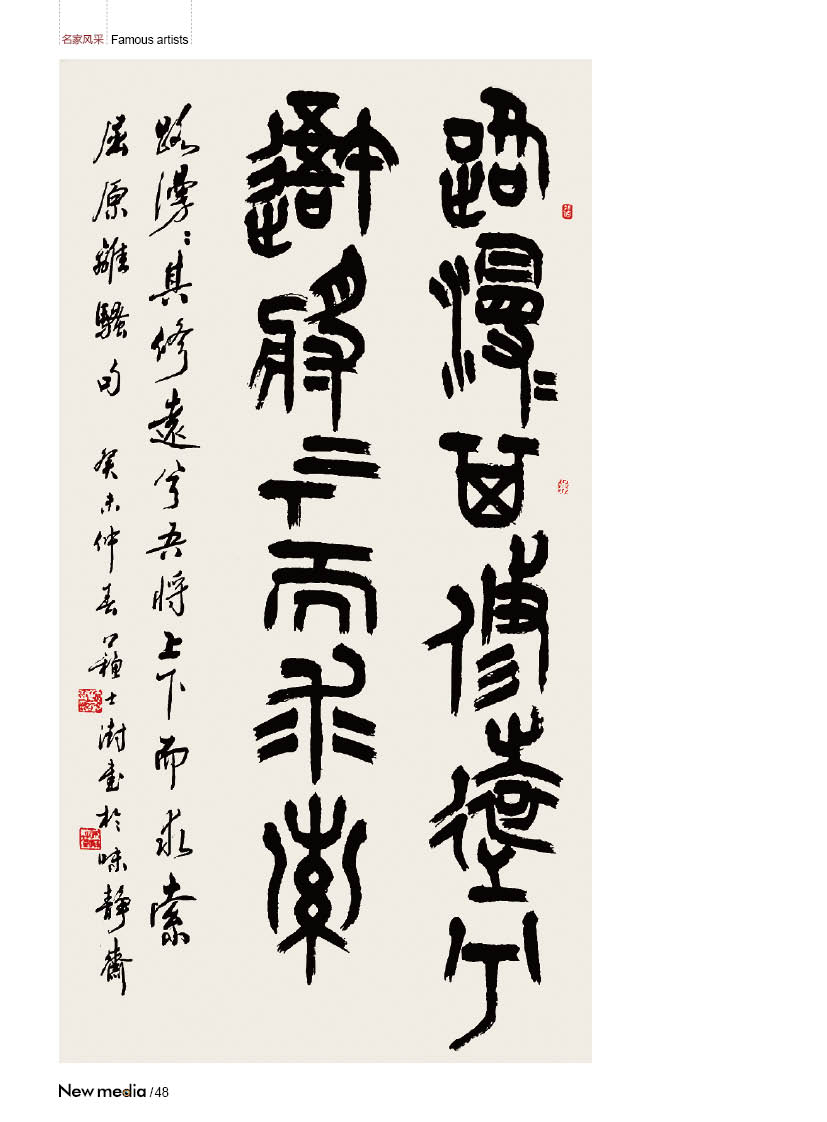 名家风采 Famous artists
路漫〻其修遠兮
吾將上下而求索
路漫〻其修遠兮吾將上下而求索
屈原離騷句 癸未仲春 蘇士澍書於味靜齋
New media /48